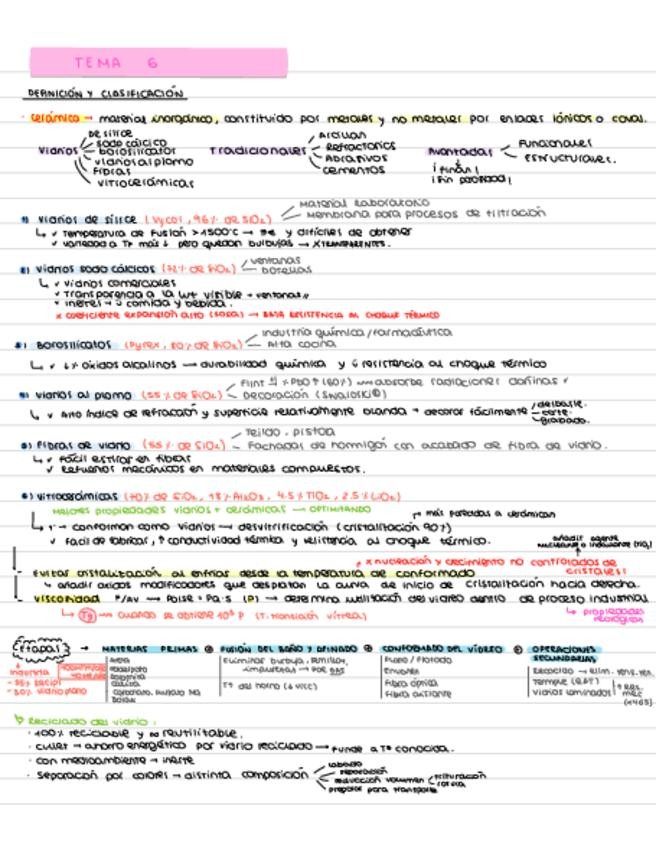 TEMA 6
DEFINICIÓN Y CLASIFICACIÓN
· Cerámica → material inorgánico, constituido por metales y no metales por enlaces iónicos o coval.
Vidrios
De sílice
sodo cálcico
borosilicatos
vidrios al plomo
Fibras
vitrocerámicas
Tradicionales
Arcillas
Refractarios
Abrasivos
cementos
Avanzadas
Funcionales
Estructurales.
1) Vidrios de sílice (Vycor, 96% de SiO₂)
Material laboratorio
Membrana para procesos de filtración
↳ ✓ Temperatura de fusión >1500°C → y difíciles de obtener
✓ variedad a Tª más ↓ pero quedan burbujas → XTRANSPARENTES.
2) Vidrios sodo cálcicos (72% de SiO₂)
ventanas
botellas
↳ ✓ vidrios comerciales
✓ Transparencia a la luz visible → ventanas
✓ inertes → comida y bebida.
x coeficiente expansión alto (sosa) → BAJA RESISTENCIA AL CHOQUE TÉRMICO
3) Borosilicatos (Pyrex, 80% de SiO₂)
Industria química/farmacéutica
Alta cocina
↳ ✓ ↓% óxidos alcalinos → durabilidad química y resistencia al choque térmico
4) Vidrios al plomo (55% de SiO₂)
Flint % PbO ↑ (80%) absorbe radiaciones dañinas
Decoración (Swarovski®)
↳ ✓ Alto índice de refracción y superficie relativamente blanda → decorar fácilmente
desbaste.
corte.
grabado.
5) Fibras de vidrio (55% de SiO₂)
Tejido, pistola
Fachadas de hormigón con acabado de fibra de vidrio.
↳ ✓ fácil estirar en fibras
✓ Refuerzos mecánicos en materiales compuestos.
6) Vitrocerámicas (70% de SiO₂, 18% Al₂O₃, 4.5% TiO₂, 2.5% LiO₂)
Mejores propiedades vidrios + cerámicas → OPTIMIZANDO
más parecidas a cerámicas
↳ 1º conforman como vidrios → desvitrificación (cristalización 90%)
✓ fácil de fabricar, ↑ conductividad térmica y resistencia al choque térmico.
añadir agente
x nucleación y crecimiento no controlados de cristales!
Evitar cristalización al enfriar desde la temperatura de conformado
añadir óxidos modificadores que desplazan la curva de inicio de cristalización hacia derecha.
Viscosidad F/AV → Poise = Pa·s (P) → determina utilización del vidrio dentro de proceso industrial
↳ Tg → cuando se obtiene (T. transición vítrea)
↳ propiedades reológicas
Etapas → MATERIAS PRIMAS FUSIÓN DEL BAÑO Y AFINADO CONFORMADO DEL VIDRIO OPERACIONES SECUNDARIAS
industria
Arena
Feldespato
Dolomita
Caliza
Eliminar burbuja, semillas, impurezas → por gas
Tª del horno
Plano / Flotado
Envases
Fibra óptica
Fibra aislante
Recocido → elim. tens. res.
Temple
Vidrios laminados
↳ Reciclado del vidrio:
· 100% reciclable y no reutilizable.
· cullet → ahorro energético por vidrio reciclado → funde a Tª conocida.
· con medioambiente → inerte
· Separación por colores → distinta composición
Lavado
separación
reducción volumen
trituración
preparar para transporte